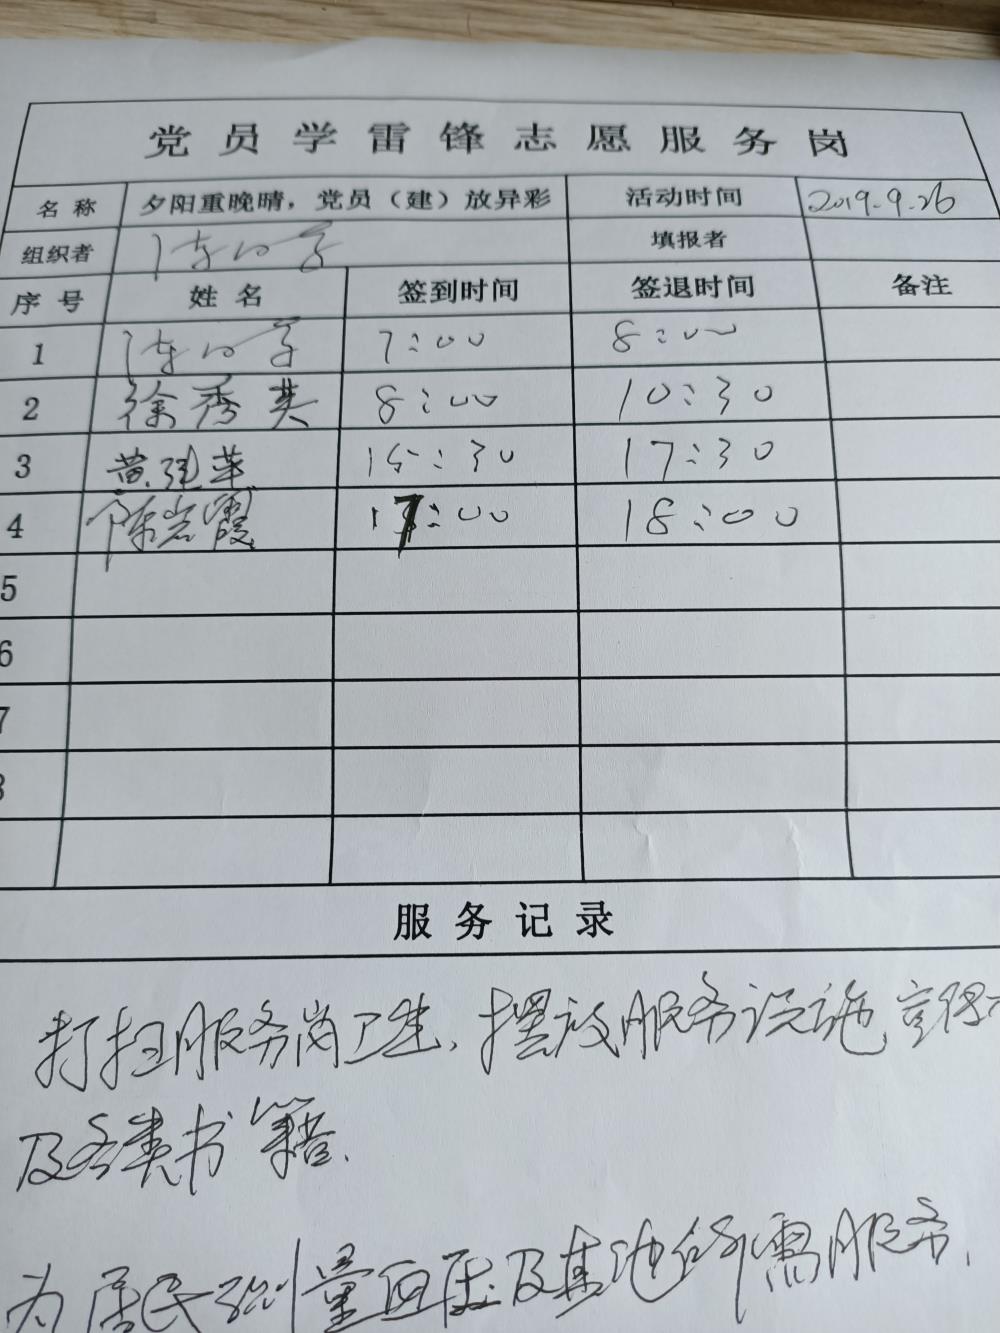 党员学雷锋志愿服务岗
名称 夕阳重晚晴，党员（建）放异彩 活动时间 2019-9-26
组织者 填报者
序号 姓名 签到时间 签退时间 备注
1 7:00 8:00
2 徐秀英 8:00 10:30
3 黄 萍 15:30 17:30
4 陈岩霞 17:00 18:00
5
6
7
8
服务记录
打扫服务岗卫生、摆放服务设施、宣
及各类书籍.
为居民测量血压及其他所需服务.